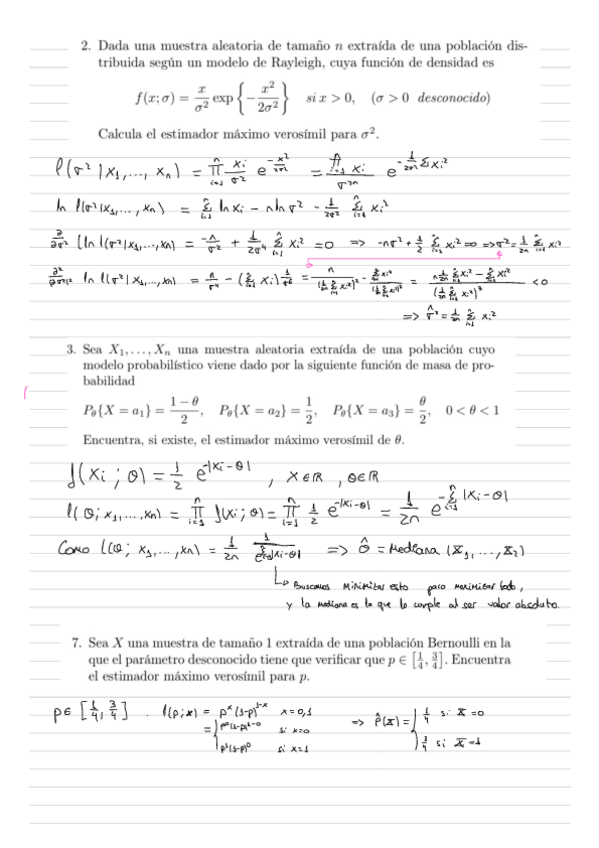 2. Dada una muestra aleatoria de tamaño n extraída de una población dis-
tribuida según un modelo de Rayleigh, cuya función de densidad es
f(x; σ) = x/σ² exp { − x²/2σ² } si x > 0, (σ > 0 desconocido)
Calcula el estimador máximo verosímil para σ².
l(σ² | x₁, ..., xₙ) = ∏ᵢ₌₁ⁿ xᵢ/σ² e^(−x²/2σ²) = ∏ᵢ₌₁ⁿ xᵢ / σ²ⁿ e^(−1/2σ² Σ xᵢ²)
ln l(σ²|x₁, ..., xₙ) = Σᵢ₌₁ⁿ ln xᵢ − n ln σ² − 1/2σ² Σᵢ₌₁ⁿ xᵢ²
∂/∂σ² (ln l(σ²|x₁, ..., xₙ) = −n/σ² + 1/2σ⁴ Σᵢ₌₁ⁿ xᵢ² = 0 => −nσ² + 1/2 Σᵢ₌₁ⁿ xᵢ² = 0 => σ² = 1/2n Σᵢ₌₁ⁿ xᵢ²
ln l(σ²|x₁, ..., xₙ) = n/σ⁴ − (Σᵢ₌₁ⁿ xᵢ) 1/σ⁶ = n/(1/2n Σ xᵢ²)² − Σ xᵢ²/(1/2n Σ xᵢ²)³ = < 0
=> σ̂² = 1/2n Σᵢ₌₁ⁿ xᵢ²
3. Sea X₁, . . . , Xₙ una muestra aleatoria extraída de una población cuyo
modelo probabilístico viene dado por la siguiente función de masa de pro-
babilidad
P_θ{X = a₁} = (1 − θ)/2, P_θ{X = a₂} = 1/2, P_θ{X = a₃} = θ/2, 0 < θ < 1
Encuentra, si existe, el estimador máximo verosímil de θ.
f(xᵢ ; θ) = 1/2 e^(−|xᵢ − θ|) , x ∈ ℝ , θ ∈ ℝ
l(θ; x₁, ..., xₙ) = ∏ᵢ₌₁ⁿ f(xᵢ; θ) = ∏ᵢ₌₁ⁿ 1/2 e^(−|xᵢ−θ|) = 1/2n e^(−Σᵢ₌₁ⁿ |xᵢ − θ|)
Como l(θ; x₁, ..., xₙ) = 1/2n 1/e^(Σ|xᵢ−θ|) => θ̂ = Mediana (X₁, ..., X₂)
Buscamos minimizar esto para maximizar todo,
y la mediana es lo que lo cumple al ser valor absoluto.
7. Sea X una muestra de tamaño 1 extraída de una población Bernoulli en la
que el parámetro desconocido tiene que verificar que p ∈ [1/4, 3/4]. Encuentra
el estimador máximo verosímil para p.
p ∈ [1/4, 3/4] . l(p; x) = pˣ (1−p)¹⁻ˣ x = 0,1
= { p⁰(1−p)¹⁻⁰ si x=0 => p̂(X) = { 1/4 si X = 0
p¹(1−p)⁰ si x=1 3/4 si X = 1